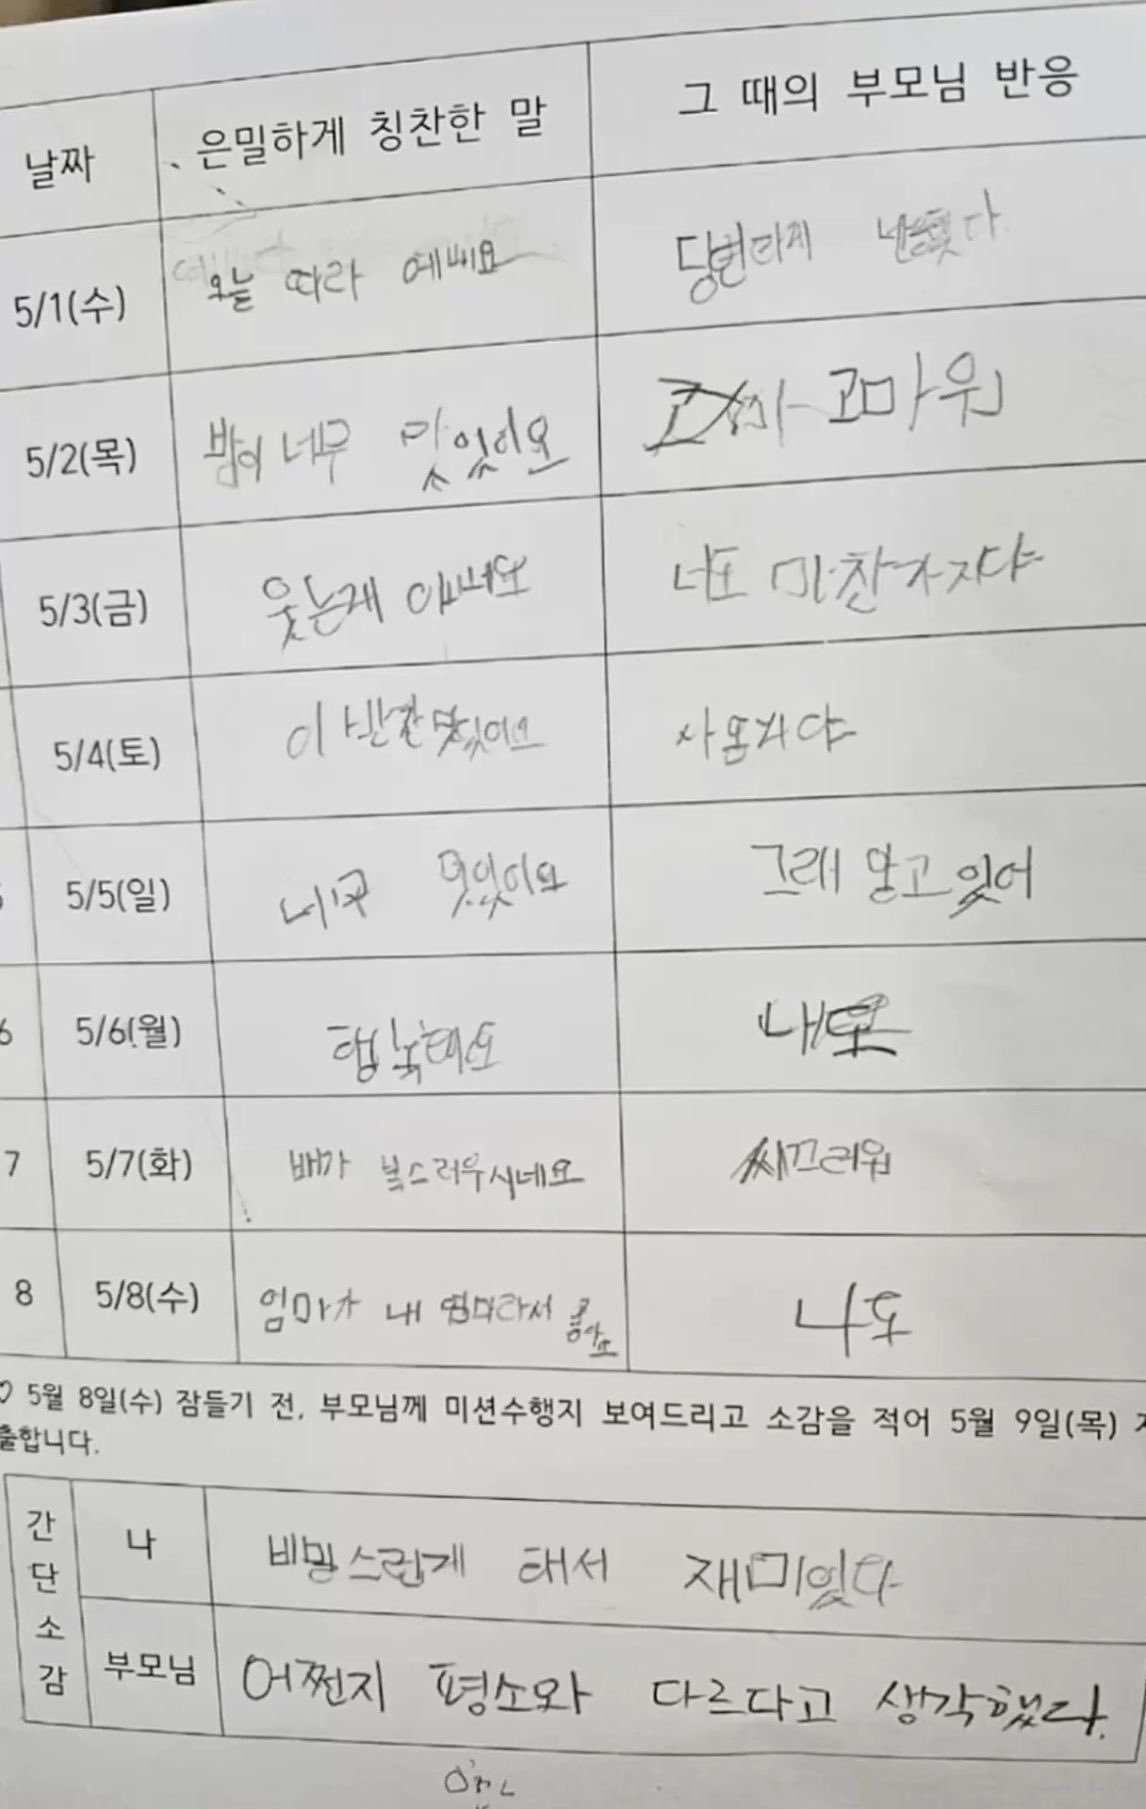 날짜 은밀하게 칭찬한 말 그 때의 부모님 반응
5/1(수) 오늘 따라 에뻐요
5/2(목) 밥이 너무 맛있이요 고마워
5/3(금) 웃는게 너도 마찬가지야
5/4(토) 이 반찬 맛있어요
5/5(일) 맛있이요 그래 알고 있어
6 5/6(월)
7 5/7(화) 배가 복스러우시네요 씨끄러워
8 5/8(수) 엄마가 내 엄마라서 좋아요 나도
♡ 5월 8일(수) 잠들기 전, 부모님께 미션수행지 보여드리고 소감을 적어 5월 9일(목)
출합니다.
간단소감
나 비밀스런게 태서 재미있다
부모님 어쩐지 평소와 다르다고 생각했다.